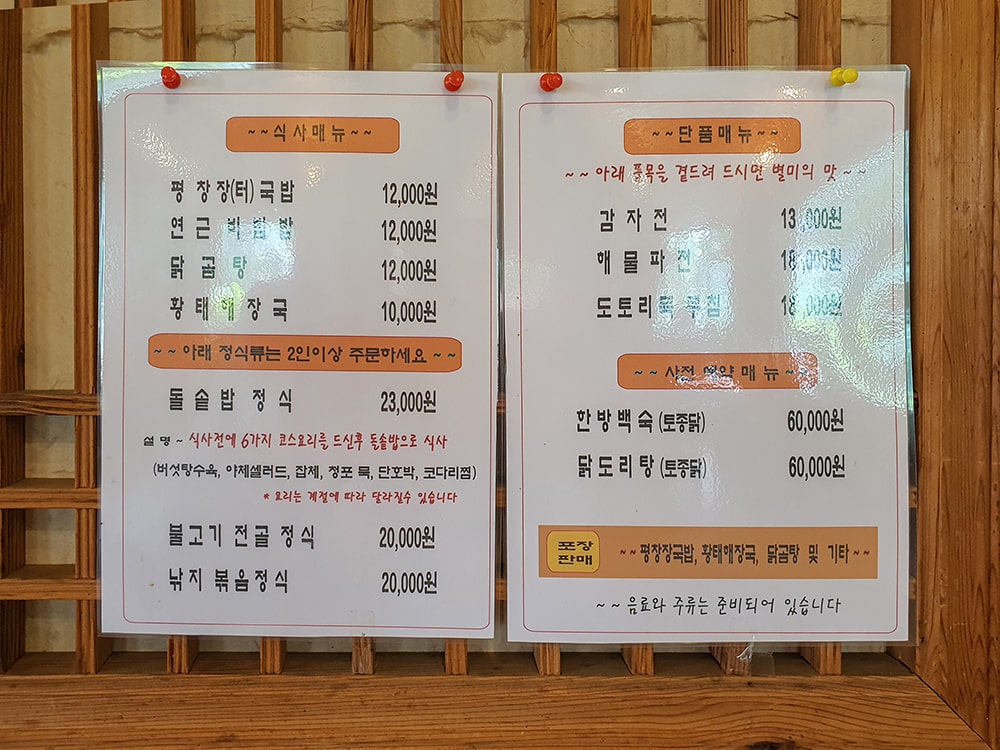 ~~식사매뉴~~
평창장(터)국밥 12,000원
연근 비빔밥 12,000원
닭곰탕 12,000원
황태해장국 10,000원
~~아래 정식류는 2인이상 주문하세요~~
돌솥밥 정식 23,000원
설명~ 식사전에 6가지 코스요리를 드신후 돌솥밥으로 식사
(버섯탕수육, 야체셀러드, 잡체, 청포 묵, 단호박, 코다리찜)
* 요리는 계절에 따라 달라질수 있습니다
불고기 전골 정식 20,000원
낚지 볶음정식 20,000원
~~단품매뉴~~
~~아래 품목을 곁드려 드시면 별미의 맛~~
감자전 13,000원
해물파전 18,000원
도토리묵 무침 18,000원
~~사전 예약 매뉴~~
한방백숙 (토종닭) 60,000원
닭도리탕 (토종닭) 60,000원
포장
판매
~~평창장국밥, 황태해장국, 닭곰탕 및 기타~~
~~음료와 주류는 준비되어 있습니다